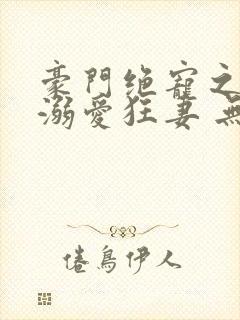 豪門绝寵之
溺愛狂妻 無
倦鳥伊人